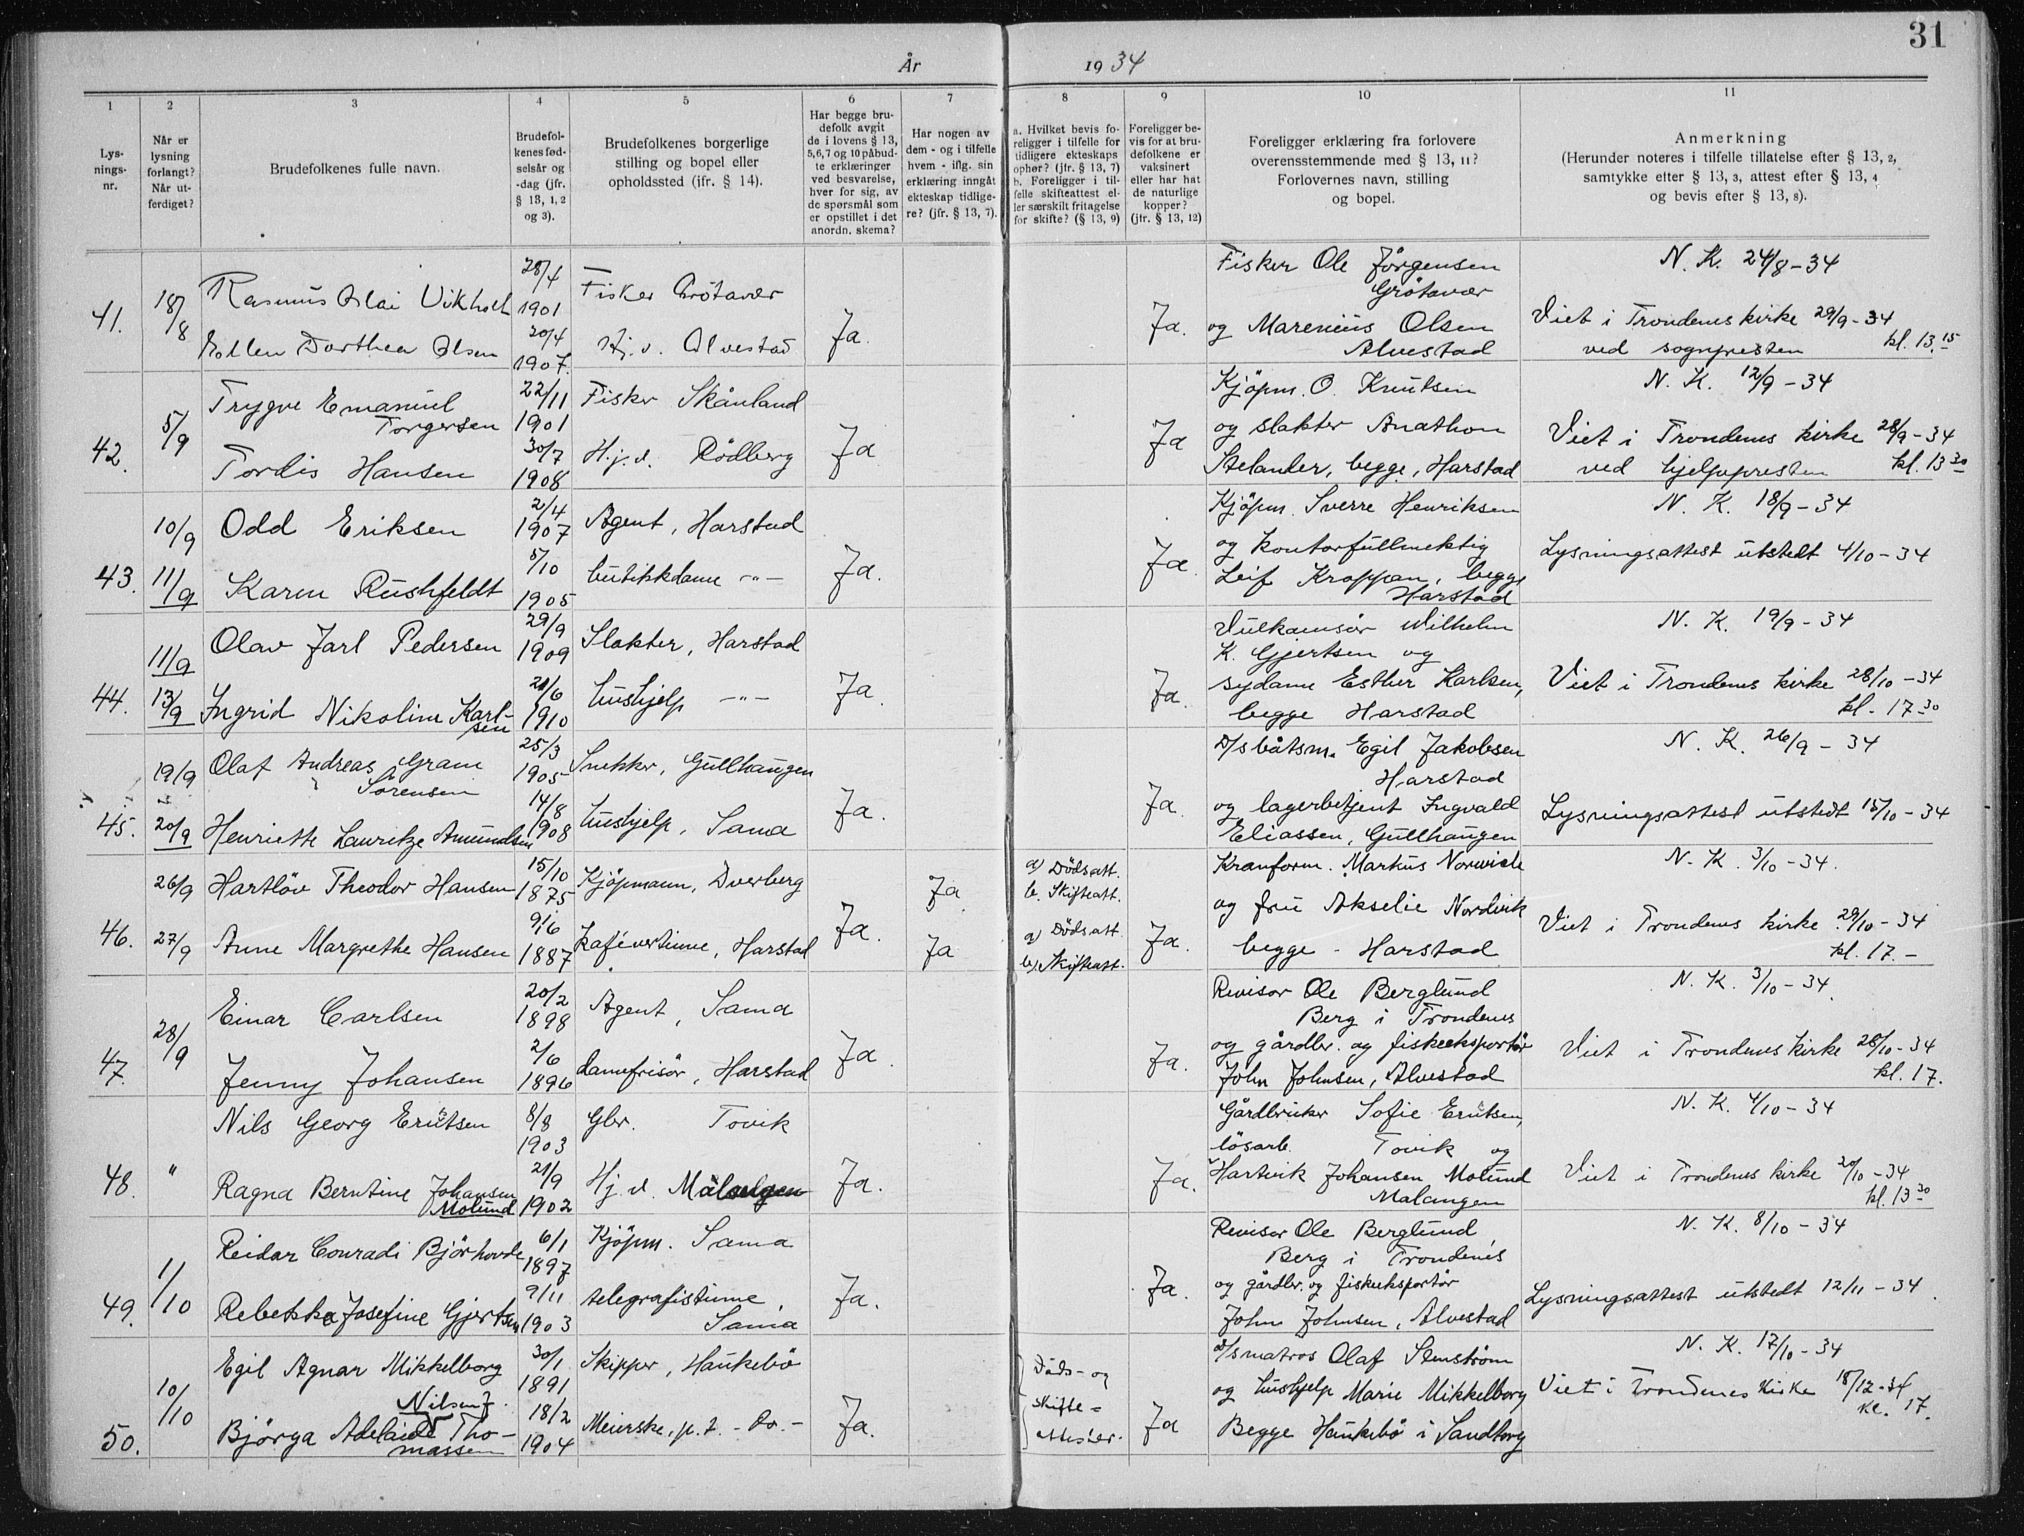 31
År 1934
1 2 3 4 5 6 7 8 9 10 11
Lys-
nings-
nr.
Når er
lysning
forlangt?
Når ut-
ferdiget?
Brudefolkenes fulle navn.
Brudefol-
kenes fød-
selsår og
-dag (jfr.
§ 13, 1, 2
og 3).
Brudefolkenes borgerlige
stilling og bopel eller
opholdssted (jfr. § 14).
Har begge bru-
defolk avgit
de i lovens § 13,
5,6,7 og 10 påbud-
te erklæringer
ved besvarelse,
hver for sig, av
de spørsmål som
er opstillet i det
anordn. skema?
Har nogen av
dem - og i tilfelle
hvem - iflg. sin
erklæring inngåt
ekteskap tidlige-
re? (jfr. § 13, 7).
a. Hvilket bevis fo-
religger i tilfelle for
tidligere ekteskaps
ophør? (jfr. § 13, 7)
b. Foreligger i til-
felle skifteattest el-
ler særskilt fritagelse
for skifte? (§ 13, 9)
Foreligger be-
vis for at bru-
defolkene er
vaksinert
eller har hat
de naturlige
kopper?
(jfr. § 13, 12)
Foreligger erklæring fra forlovere
overensstemmende med § 13, 11?
Forlovernes navn, stilling
og bopel.
Anmerkning
(Herunder noteres i tilfelle tillatelse efter § 13, 2,
samtykke efter § 13, 3, attest efter § 13, 4
og bevis efter § 13, 8).
41. 18/8
Rasmus Olai Vikholt 28/4 1901 Fisker Grötavær
Ellen Dorthea Olsen 20/4 1907. Hj.d. Alvestad Ja.
Ja.
Fisker Ole Jörgensen
Grötavær
og Marenius Olsen
Alvestad
N. K. 24/8-34
Viet i Trondenes kirke 29/9-34
ved sognpresten kl. 13.15
42. 5/9
Trygve Emanuel
Torgersen 22/11 1901 Fisker Skånland
Tordis Hansen 30/7 1908 Hj.d. Rödberg Ja
Ja
Kjöpm. O. Knutsen
og slakter Anathon
Stelander, begge, Harstad
N. K. 12/9-34
Viet i Trondenes kirke 28/9-34
ved hjelpepresten kl. 13 30
43. 10/9 11/9
Odd Eriksen 2/4 1907 Agent, Harstad
Karen Rushfeldt 5/10 1905 butikkdame -"- Ja.
Ja.
Kjöpm. Sverre Henriksen
og kontorfullmektig
Leif Kroppan, begge
Harstad
N. K. 18/9-34
Lysningsattest utstedt 4/10-34
44. 11/9 13/9
Olav Jarl Pedersen 29/9 1909 Slakter, Harstad
Ingrid Nikoline Karl-
sen 21/6 1910 hushjelp -"- Ja
Ja.
Vulkanisör Wilhelm
K. Gjertsen og
sydame Esther Karlsen,
begge Harstad
N. K. 19/9-34
Viet i Trondenes kirke 28/10-34
kl. 17 30
45. 19/9 20/9
Olaf Andreas Gram
Sörensen 25/3 1905 Snekker, Gullhaugen
Henriette Lauritze Amundsen 14/8 1908 hushjelp, Sama Ja.
Ja.
D/s båtsm. Egil Jakobsen
Harstad
og lagerbetjent Ingvald
Eliassen, Gullhaugen
N. K. 26/9-34
Lysningsattest utstedt 15/10-34
46. 26/9 27/9
Hartlöv Theodor Hansen 15/10 1875 Kjöpmann, Dverberg Ja a) Dödsatt.
b. Skifteatt.
Anne Margrethe Hansen 9/6 1887 kafévertinne, Harstad Ja. Ja a) Dödsatt.
b). Skifteatt. Ja.
Kranform. Markus Norvik
og fru Akselie Nordvik
begge - Harstad
N. K. 3/10-34.
Viet i Trondenes kirke 29/10-34
kl. 17.-
47. 28/9
Einar Carlsen 20/2 1898 Agent, Sama
Jenny Johansen 2/6 1896 damefrisör, Harstad Ja.
Ja.
Revisor Ole Berglund
Berg i Trondenes
og gårdbr. og fiskeeksportör
John Johnsen, Alvestad
N. K. 3/10-34.
Viet i Trondenes kirke 28/10-34
kl. 17.
48. "
Nils Georg Erntsen 8/8 1903 Gbr. Tovik
Ragna Berntine Johansen
Molund 21/9 1902 Hj.d. Malangen Ja.
Ja.
Gårdbruker Sofie Erntsen,
Tovik og
lösarb.
Hartvik Johansen Molund
Malangen
N. K. 4/10-34
Viet i Trondenes kirke 20/10-34
kl. 13 30
49. 1/10
Reidar Conradi Björhovde 6/1 1897 Kjöpm. Sama
Rebekka Josefine Gjertsen 9/11 1903 telegrafistinne,
Sama Ja.
Ja.
Revisor Ole Berglund,
Berg i Trondenes
og gårdbr. og fiskeeksportör
John Johnsen, Alvestad
N. K. 8/10-34
Lysningsattest utstedt 12/11-34.
50. 10/10
Egil Agnar Mikkelborg 30/1 1891 Skipper, Haukebö
Nilsen f.
Björga Adelaide Tho-
massen 18/2 1904 Meierske, p.t. - Do - Ja.
Döds- og
skifte-
attester.
Ja
D/smatros Olaf Stenström
og hushjelp Marie Mikkelborg
Begge Haukebö i Sandtorg
N. K. 17/10-34
Viet i Trondenes kirke 18/12-34
kl. 17.